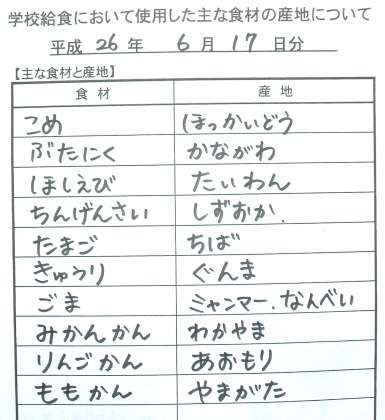 学校給食において使用した主な食材の産地について
平成 26 年 6 月 17 日分
【主な食材と産地】
食材 産地
こめ ほっかいどう
ぶたにく かながわ
ほしえび たいわん
ちんげんさい しずおか.
たまご ちば
きゅうり ぐんま
ごま ミャンマー.なんべい
みかんかん わかやま
りんごかん あおもり
ももかん やまがた